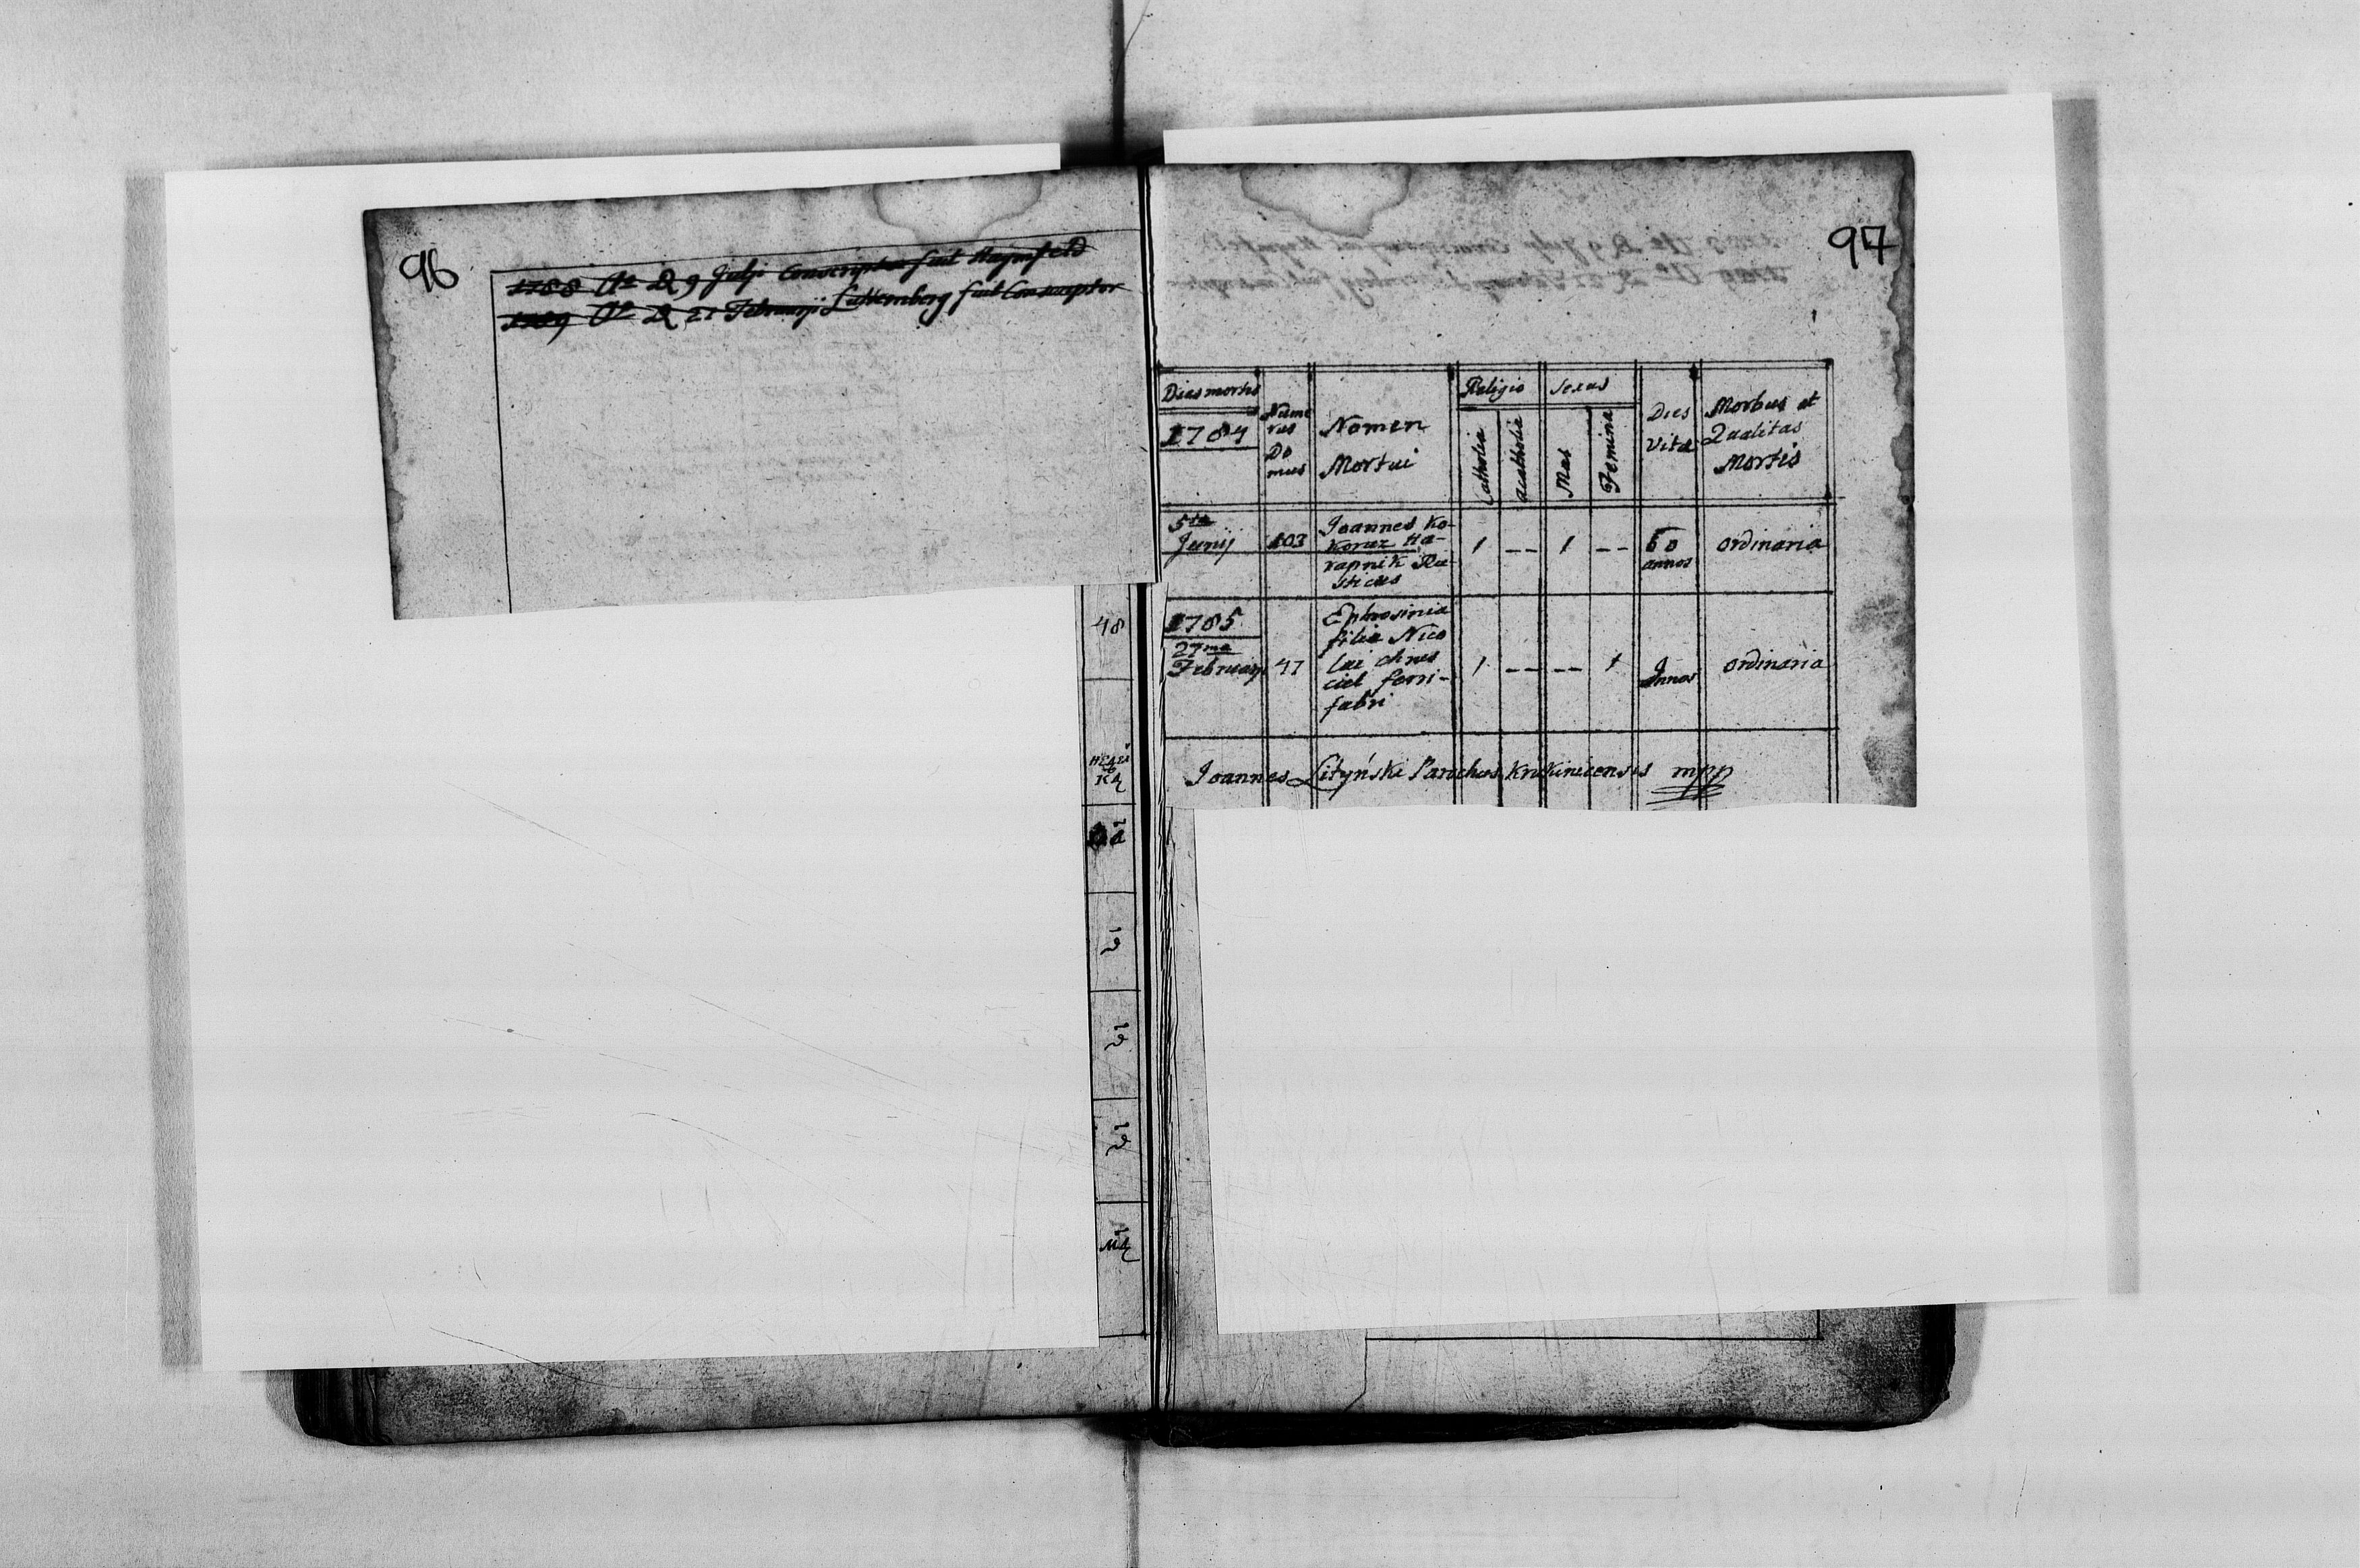 96
1788 Ao D 9 Julji Conscriptor fuit Haÿnfeld
1789 Ao D 21 Februarji Luttemberg fuit Conscriptor
48
97
Dies mortis
1784
Nume
rus
Do
mus
Nomen
Mortui
Religio
Catholia
Acatholia
Sexus
Mas
Femina
Dies
Vitæ
Morbus et
Qualitas
Mortis
5ta
Junij
103
Joannes Ko-
Koruz Ha-
rapnik Ru-
sticus
1 -- 1 --
60
annos
ordinaria
1785
27ma
Februarji
47
Ephrosinia
filia Nico
lai
ciel ferri-
fabri
1 -- -- 1
Annos
ordinaria
Joannes Lityński Parochus Krukinicensis mpp